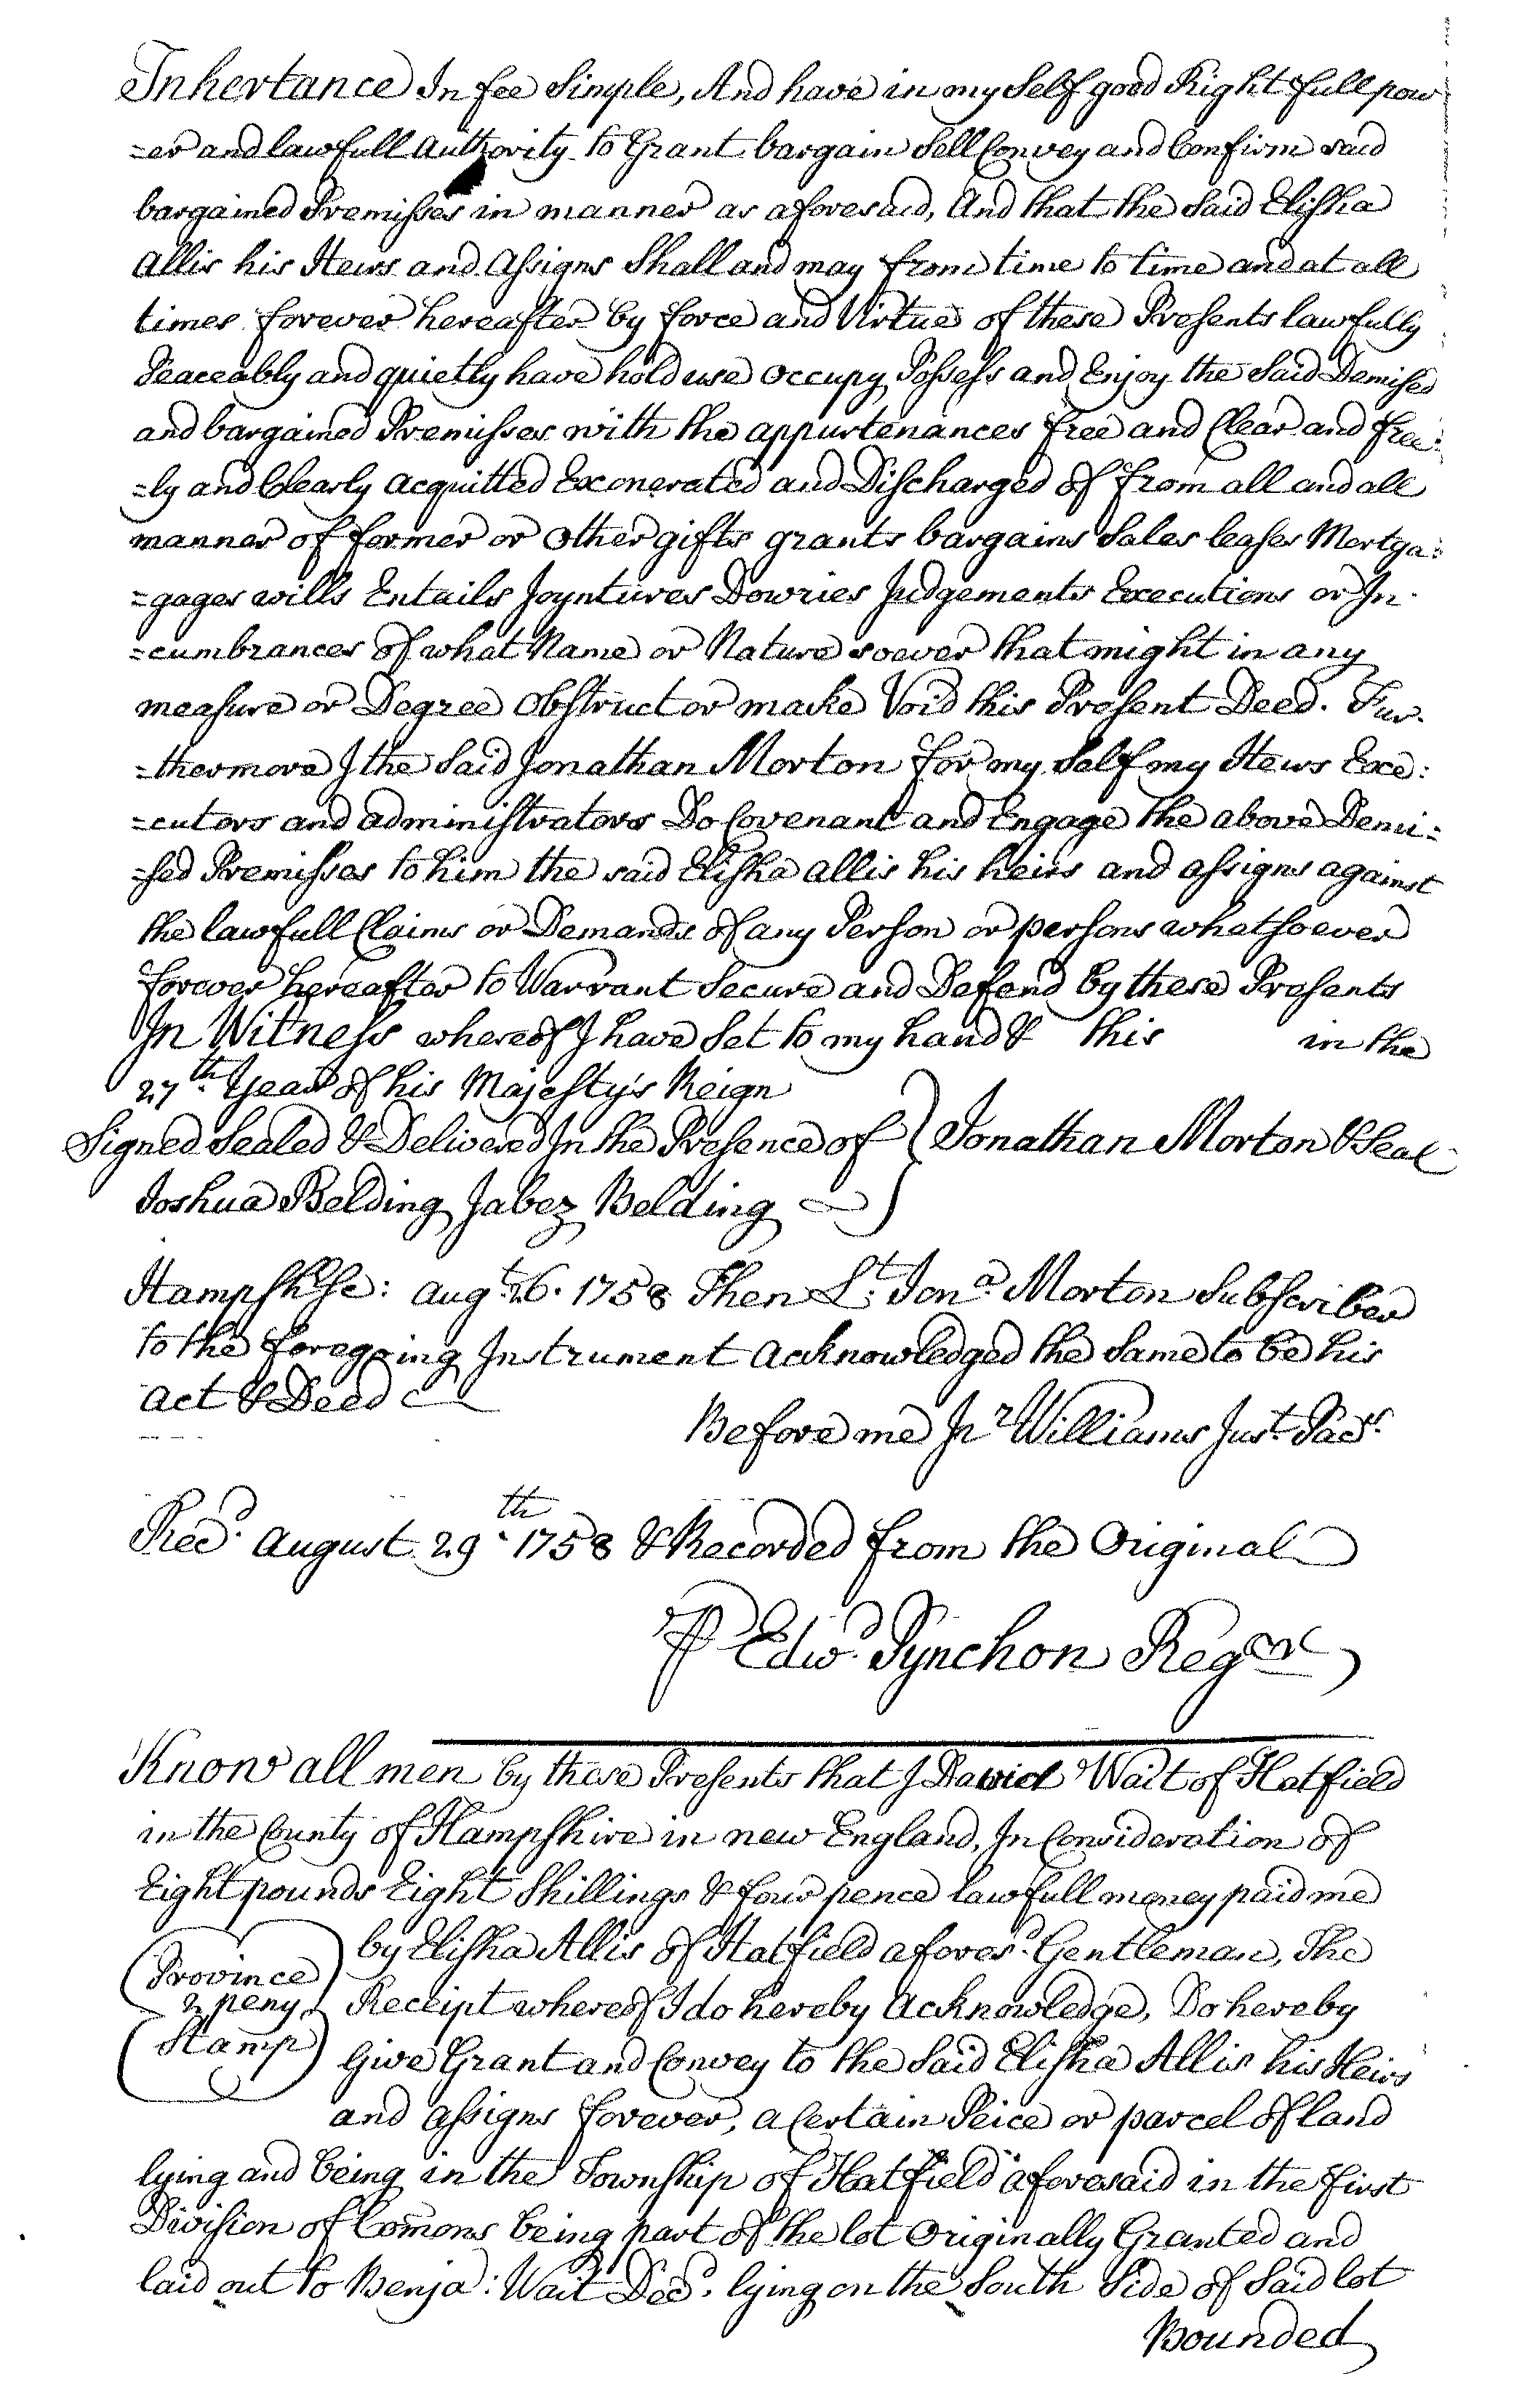 Inhertance In fee Simple, And have in my Self good Right full pow
=er and lawfull Authority to Grant bargain Sell Convey and Confirm said
bargained Premisses in manner as aforesaid, And that the Said Elisha
Allis his Heirs and Assigns Shall and may from time to time and at all
times forever hereafter by force and Virtue of these Presents lawfully
Peaceably and quietly have hold use occupy Possess and Enjoy the Said Demised
and bargained Premisses with the appurtenances free and Clear and free=
=ly and Clearly acquitted Exonerated and Discharged of from all and all
manner of former or other gifts grants bargains Sales leases Mortga=
=gages wills Entails Joyntures Dowries Judgements Executions or In
=cumbrances of what Name or Nature soever that might in any
measure or Degree Obstruct or make Void this Present Deed. Fur-
=thermore I the Said Jonathan Morton for my Self my Heirs Exe:
=cutors and administrators Do Covenant and Engage the above Demi=
=sed Premisses to him the said Elisha allis his heirs and assigns against
the lawfull Claims or Demands of any Person or persons whatsoever
forever hereafter to Warrant Secure and Defend by these Presents
In Witness whereof I have Set to my hand & this in the
27th Year of his Majesty's Reign
Signed Sealed & Delivered In the Presence of } Jonathan Morton & Seal
Joshua Belding Jabez Belding
Hampshse: Augt 26. 1758 Then Lt. Jona. Morton Subscriber
to the foregoing Instrument acknowledged the Same to be his
act & Deed
Before me Jr Williams Just Pacs.
Recd. August 29th 1758 & Recorded from the Original
P Edwd. Pynchon Regr
Know all men by these Presents that I David Wait of Hatfield
in the County of Hampshire in new England, In Consideration of
Eight pounds Eight Shillings & four pence lawfull money paid me
by Elisha Allis of Hatfield aforesd. Gentleman, The
Province
2 peny
Stamp
Receipt whereof I do hereby acknowledge, Do hereby
Give Grant and Convey to the Said Elisha Allis his Heirs
and assigns forever, a Certain Peice or parcel of land
lying and being in the Township of Hatfield aforesaid in the first
Division of Comons being part of the lot Originally Granted and
laid out to Benja: Wait Decd. lying on the South Side of Said lot
Bounded